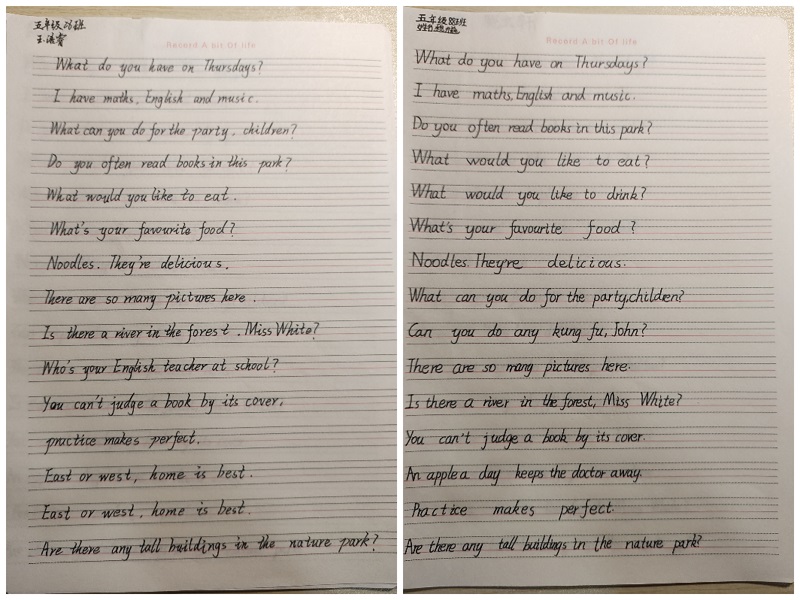 五年级
Record A bit Of life
What do you have on Thursdays?
I have maths, English and music.
What can you do for the party, children?
Do you often read books in this park?
What would you like to eat.
What's your favourite food?
Noodles. They're delicious.
There are so many pictures here.
Is there a river in the forest. Miss White?
Who's your English teacher at school?
You can't judge a book by its cover.
practice makes perfect.
East or west, home is best.
East or west, home is best.
Are there any tall buildings in the nature park?
五年级
Record A bit Of life
What do you have on Thursdays?
I have maths, English and music.
Do you often read books in this park?
What would you like to eat?
What would you like to drink?
What's your favourite food ?
Noodles. They're delicious.
What can you do for the party, children?
Can you do any kung fu, John?
There are so many pictures here.
Is there a river in the forest, Miss White?
You can't judge a book by its cover.
An apple a day keeps the doctor away.
Practice makes perfect.
Are there any tall buildings in the nature park?